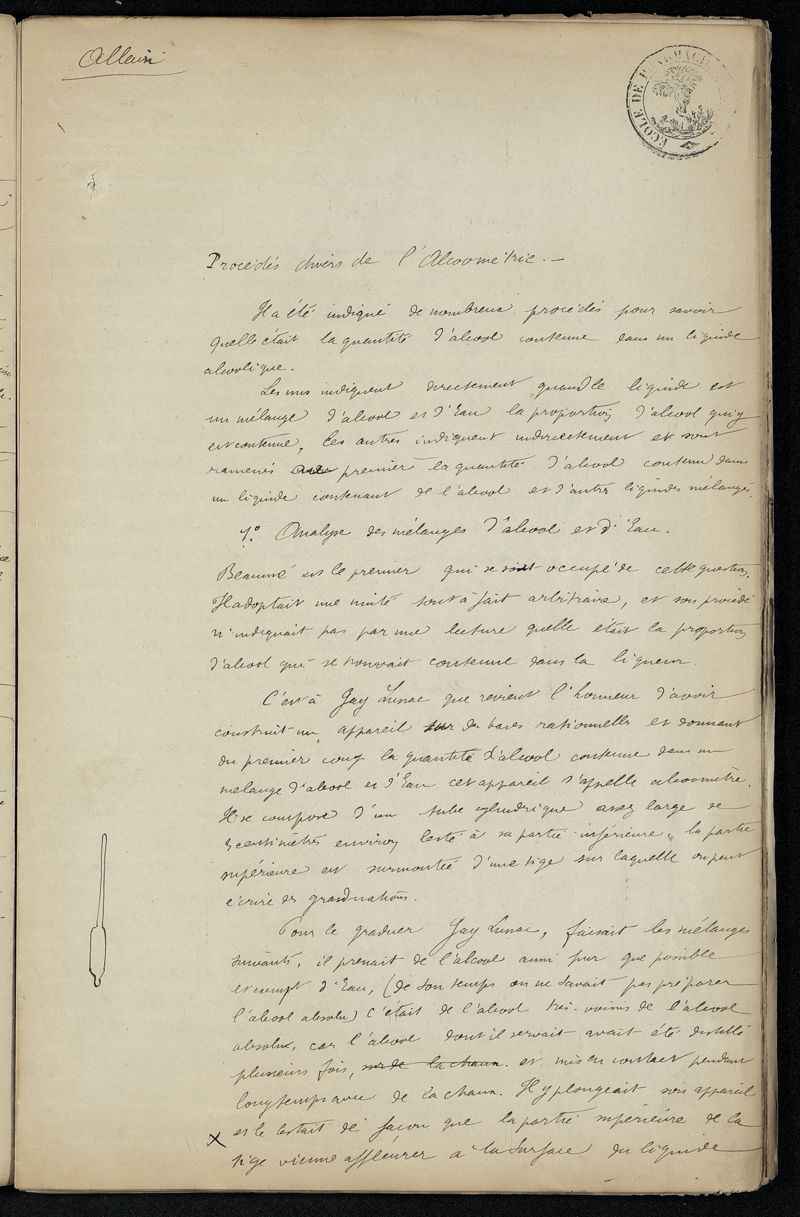 Allain
ECOLE DE PHARMACIE
Procédés divers de l'Alcoométrie. —
Il a été indiqué de nombreux procédés pour savoir
quelle était la quantité d'alcool contenue dans un liquide
alcoolique.
Les uns indiquent directement quand le liquide est
un mélange d'alcool et d'Eau la proportion d'alcool qui y
est contenue, les autres indiquent indirectement et sont
ramenés au premier la quantité d'alcool contenu dans
un liquide contenant de l'alcool et d'autres liquides mélangés.
1.° Analyse des mélanges d'alcool et d'Eau.
Beaumé est le premier qui se soit occupé de cette question.
Il adoptait une unité tout à fait arbitraire, et son procédé
n'indiquait pas par une lecture quelle était la proportion
d'alcool qui se trouvait contenue dans la liqueur.
C'est à Gay Lussac que revient l'honneur d'avoir
construit un appareil sur des bases rationnelles et donnant
du premier coup la quantité d'alcool contenue dans un
mélange d'alcool et d'Eau cet appareil s'appelle alcoomètre.
Il se compose d'un tube cylindrique assez large de
centimètres environ lesté à sa partie inférieure, la partie
supérieure est surmontée d'une tige sur laquelle on peut
écrire des graduations.
Pour le graduer Gay Lussac, faisait les mélanges
suivants, il prenait de l'alcool aussi pur que possible
et exempt d'Eau, (de son temps on ne savait pas préparer
l'alcool absolu) c'était de l'alcool très-voisin de l'alcool
absolu, car l'alcool dont il servait avait été distillé
plusieurs fois, sur de la chaux. et mis en contact pendant
longtemps avec de la chaux. Il y plongeait son appareil
X et le lestait de façon que la partie supérieure de la
tige vienne affleurer à la surface du liquide